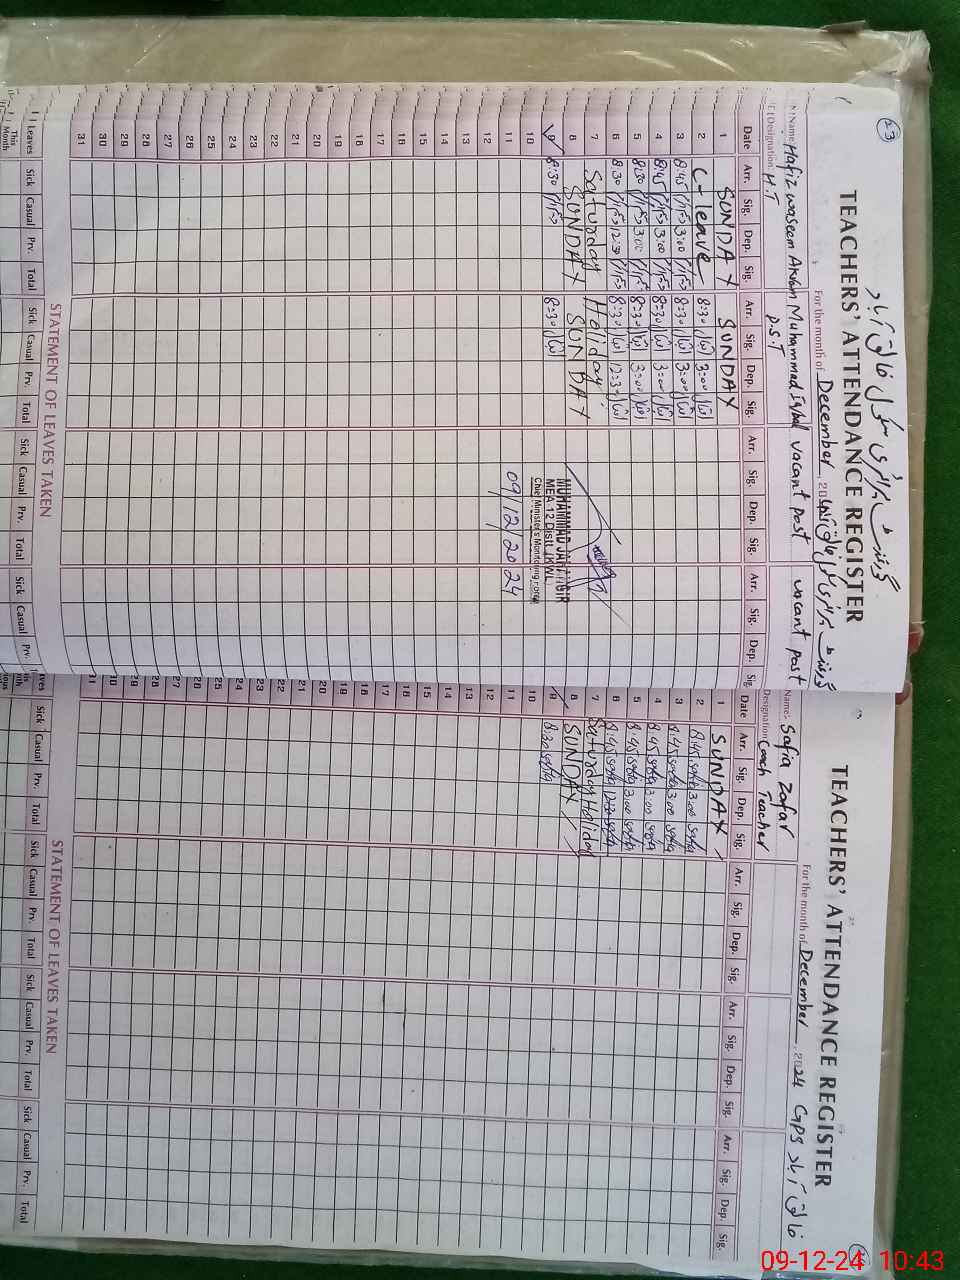 23
گورنمنٹ پرائمری سکول فاروق آباد
TEACHERS' ATTENDANCE REGISTER
For the month of December, 2024
Name Hafiz waseem Akram Muhammad Iqbal vacant post vacant post
Designation H.T P.S.T
Date Arr. Sig. Dep. Sig. Arr. Sig. Dep. Sig. Arr. Sig. Dep. Sig. Arr. Sig. Dep. Sig.
1 SUNDAY SUNDAY
2 C-leave 8:30 3:00
3 8:45 3:00 8:30 3:00
4 8:45 3:00 8:30 3:00
5 8:30 3:00 8:30 3:00
6 8:30 12:30 8:30 12:30
7 Saturday Holiday
8 SUNDAY SUNDAY
9 8:30 8:30
10
11
12
13
14
15
16
17
18
19
20
21
22
23
24
25
26
27
28
29
30
31
MUHAMMAD JAHANGIR
MEA-12 Distt. KWL
Chief Minister's Monitoring Force
09/12/2024
STATEMENT OF LEAVES TAKEN
Leaves Sick Casual Prv. Total Sick Casual Prv. Total Sick Casual Prv. Total Sick Casual Prv.
This Month
TEACHERS' ATTENDANCE REGISTER
For the month of December, 2024 GPS فاروق آباد
Name: Safia Zafar
Designation Coach Teacher
Date Arr. Sig. Dep. Sig. Arr. Sig. Dep. Sig. Arr. Sig. Dep. Sig. Arr. Sig. Dep. Sig.
1 SUNDAY
2 8:45 3:00
3 8:45 3:00
4 8:45 3:00
5 8:45 3:00
6 8:45 12:30
7 Saturday Holiday
8 SUNDAY
9 8:30
10
11
12
13
14
15
16
17
18
19
20
21
22
23
24
25
26
27
28
29
30
31
STATEMENT OF LEAVES TAKEN
Sick Casual Prv. Total Sick Casual Prv. Total Sick Casual Prv. Total Sick Casual Prv. Total
09-12-24 10:43